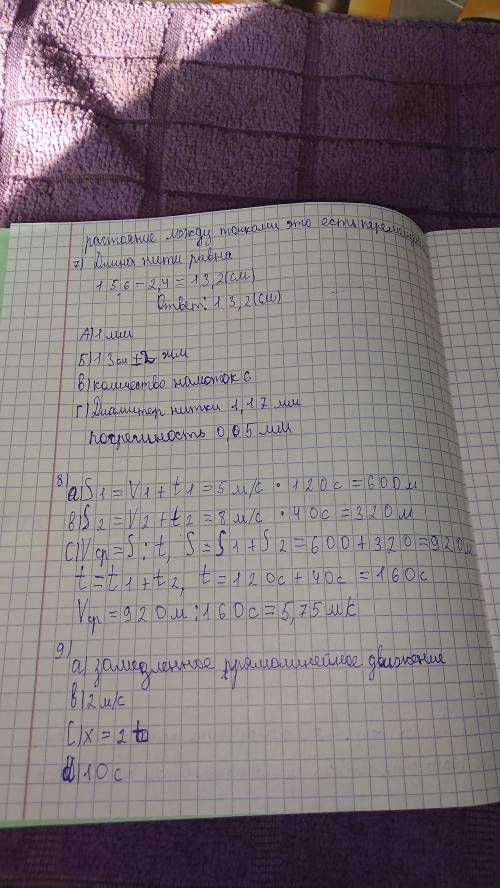 растояние между точками это есть перемещен
7) Длина нити равна
15,6 - 2,4 = 13,2 (см)
Ответ: 13,2 (см)
А) 1 мм
Б) 13 см ± 2 мм
в) количество намоток 6
г) Диаметр нитки 1,17 мм
погрешность 0,05 мм
8)
a) S1 = V1 + t1 = 5 м/с · 120с = 600м
в) S2 = V2 + t2 = 8 м/с · 40с = 320м
c) Vср = S : t, S = S1 + S2 = 600 + 320 = 920м
t = t1 + t2, t = 120с + 40с = 160с
Vср = 920м : 160с = 5,75 м/с
9)
a) замедленное прямолинейное движение
в) 2 м/с
c) x = 2t
d) 10 с